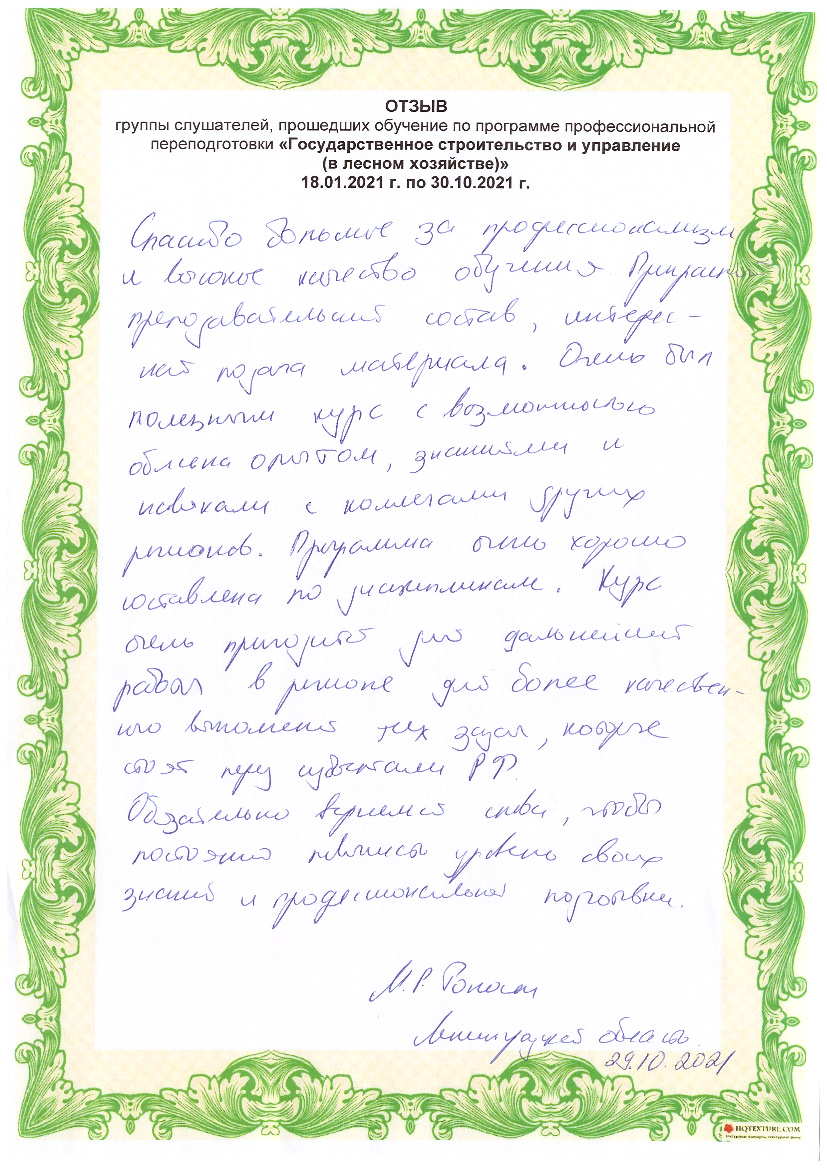 ОТЗЫВ
группы слушателей, прошедших обучение по программе профессиональной
переподготовки «Государственное строительство и управление
(в лесном хозяйстве)»
18.01.2021 г. по 30.10.2021 г.
Спасибо большое за профессионализм
и высокое качество обучения. Прекрасный
преподавательский состав, интерес-
ная подача материала. Очень был
полезным курс с возможностью
обмена опытом, знаниями и
навыками с коллегами других
регионов. Программа очень хорошо
составлена по дисциплинам. Курс
очень пригодится для дальнейшей
работы в регионе для более качествен-
ного выполнения тех задач, которые
стоят перед субъектами РФ.
Обязательно вернемся снова, чтобы
постоянно повышать уровень своих
знаний и профессиональной подготовки.
М.Р.
Ленинградская область.
29.10.2021
HQTEXTURE.COM